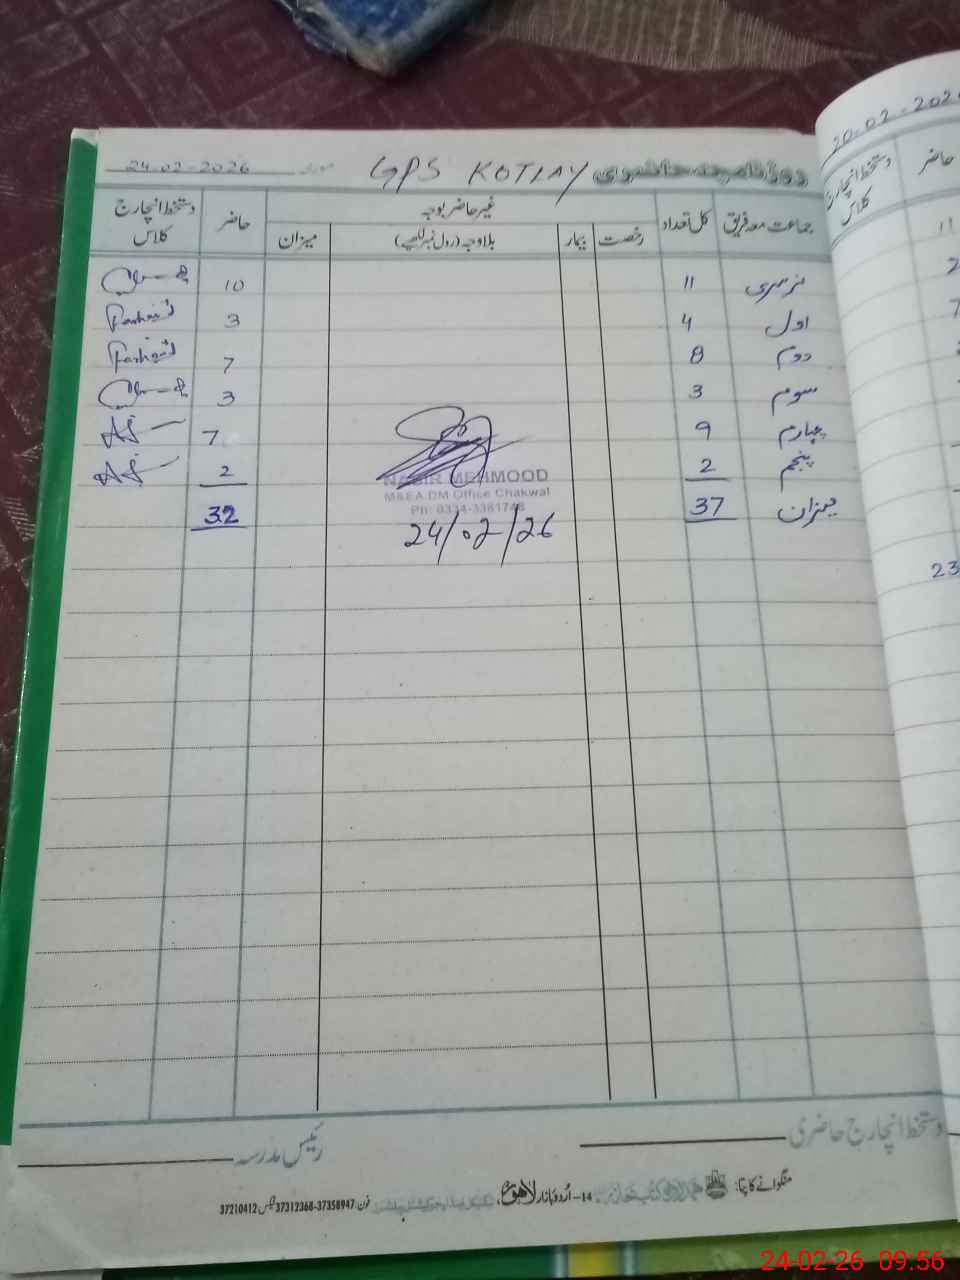 روزنامچہ حاضری GPS KOTLAY مورخہ 24-02-2026
جماعت معہ فریق کل تعداد غیر حاضر بوجہ حاضر دستخط انچارج کلاس
رخصت بیمار بلاوجہ (رول نمبر لکھیے) میزان
نرسری 11 10
اول 4 3 Farhat
دوم 8 7 Farhat
سوم 3 3
چہارم 9 7
پنجم 2 2
میزان 37 32
NASIR MEHMOOD
M&EA DM Office Chakwal
Ph: 0334-3381748
24/02/26
دستخط انچارج حاضری
رئیس مدرسہ
منگوانے کا پتا: 14-اُردو بازار لاہور، فون: 37312368-37358947 فیکس: 37210412
20-02-202
حاضر دستخط انچارج کلاس
11
23
24-02-26 09:56